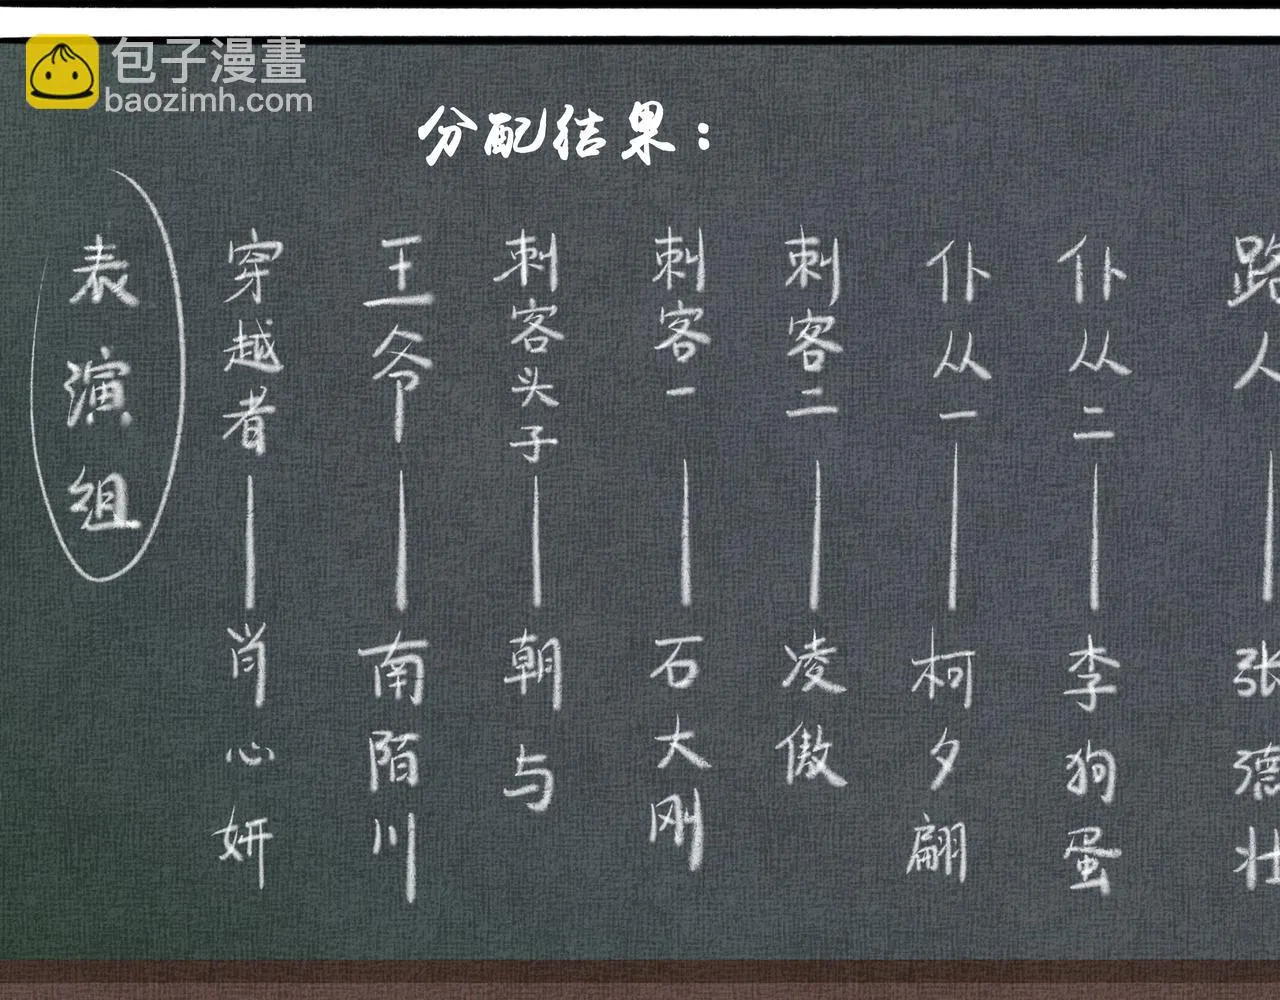 包子漫畫
baozimh.com
分配结果：
表演组
穿越者——肖心妍
王爷——南陌川
刺客头子——朝与
刺客一——石大刚
刺客二——凌傲
仆从一——柯夕翩
仆从二——李狗蛋
路人——张德壮